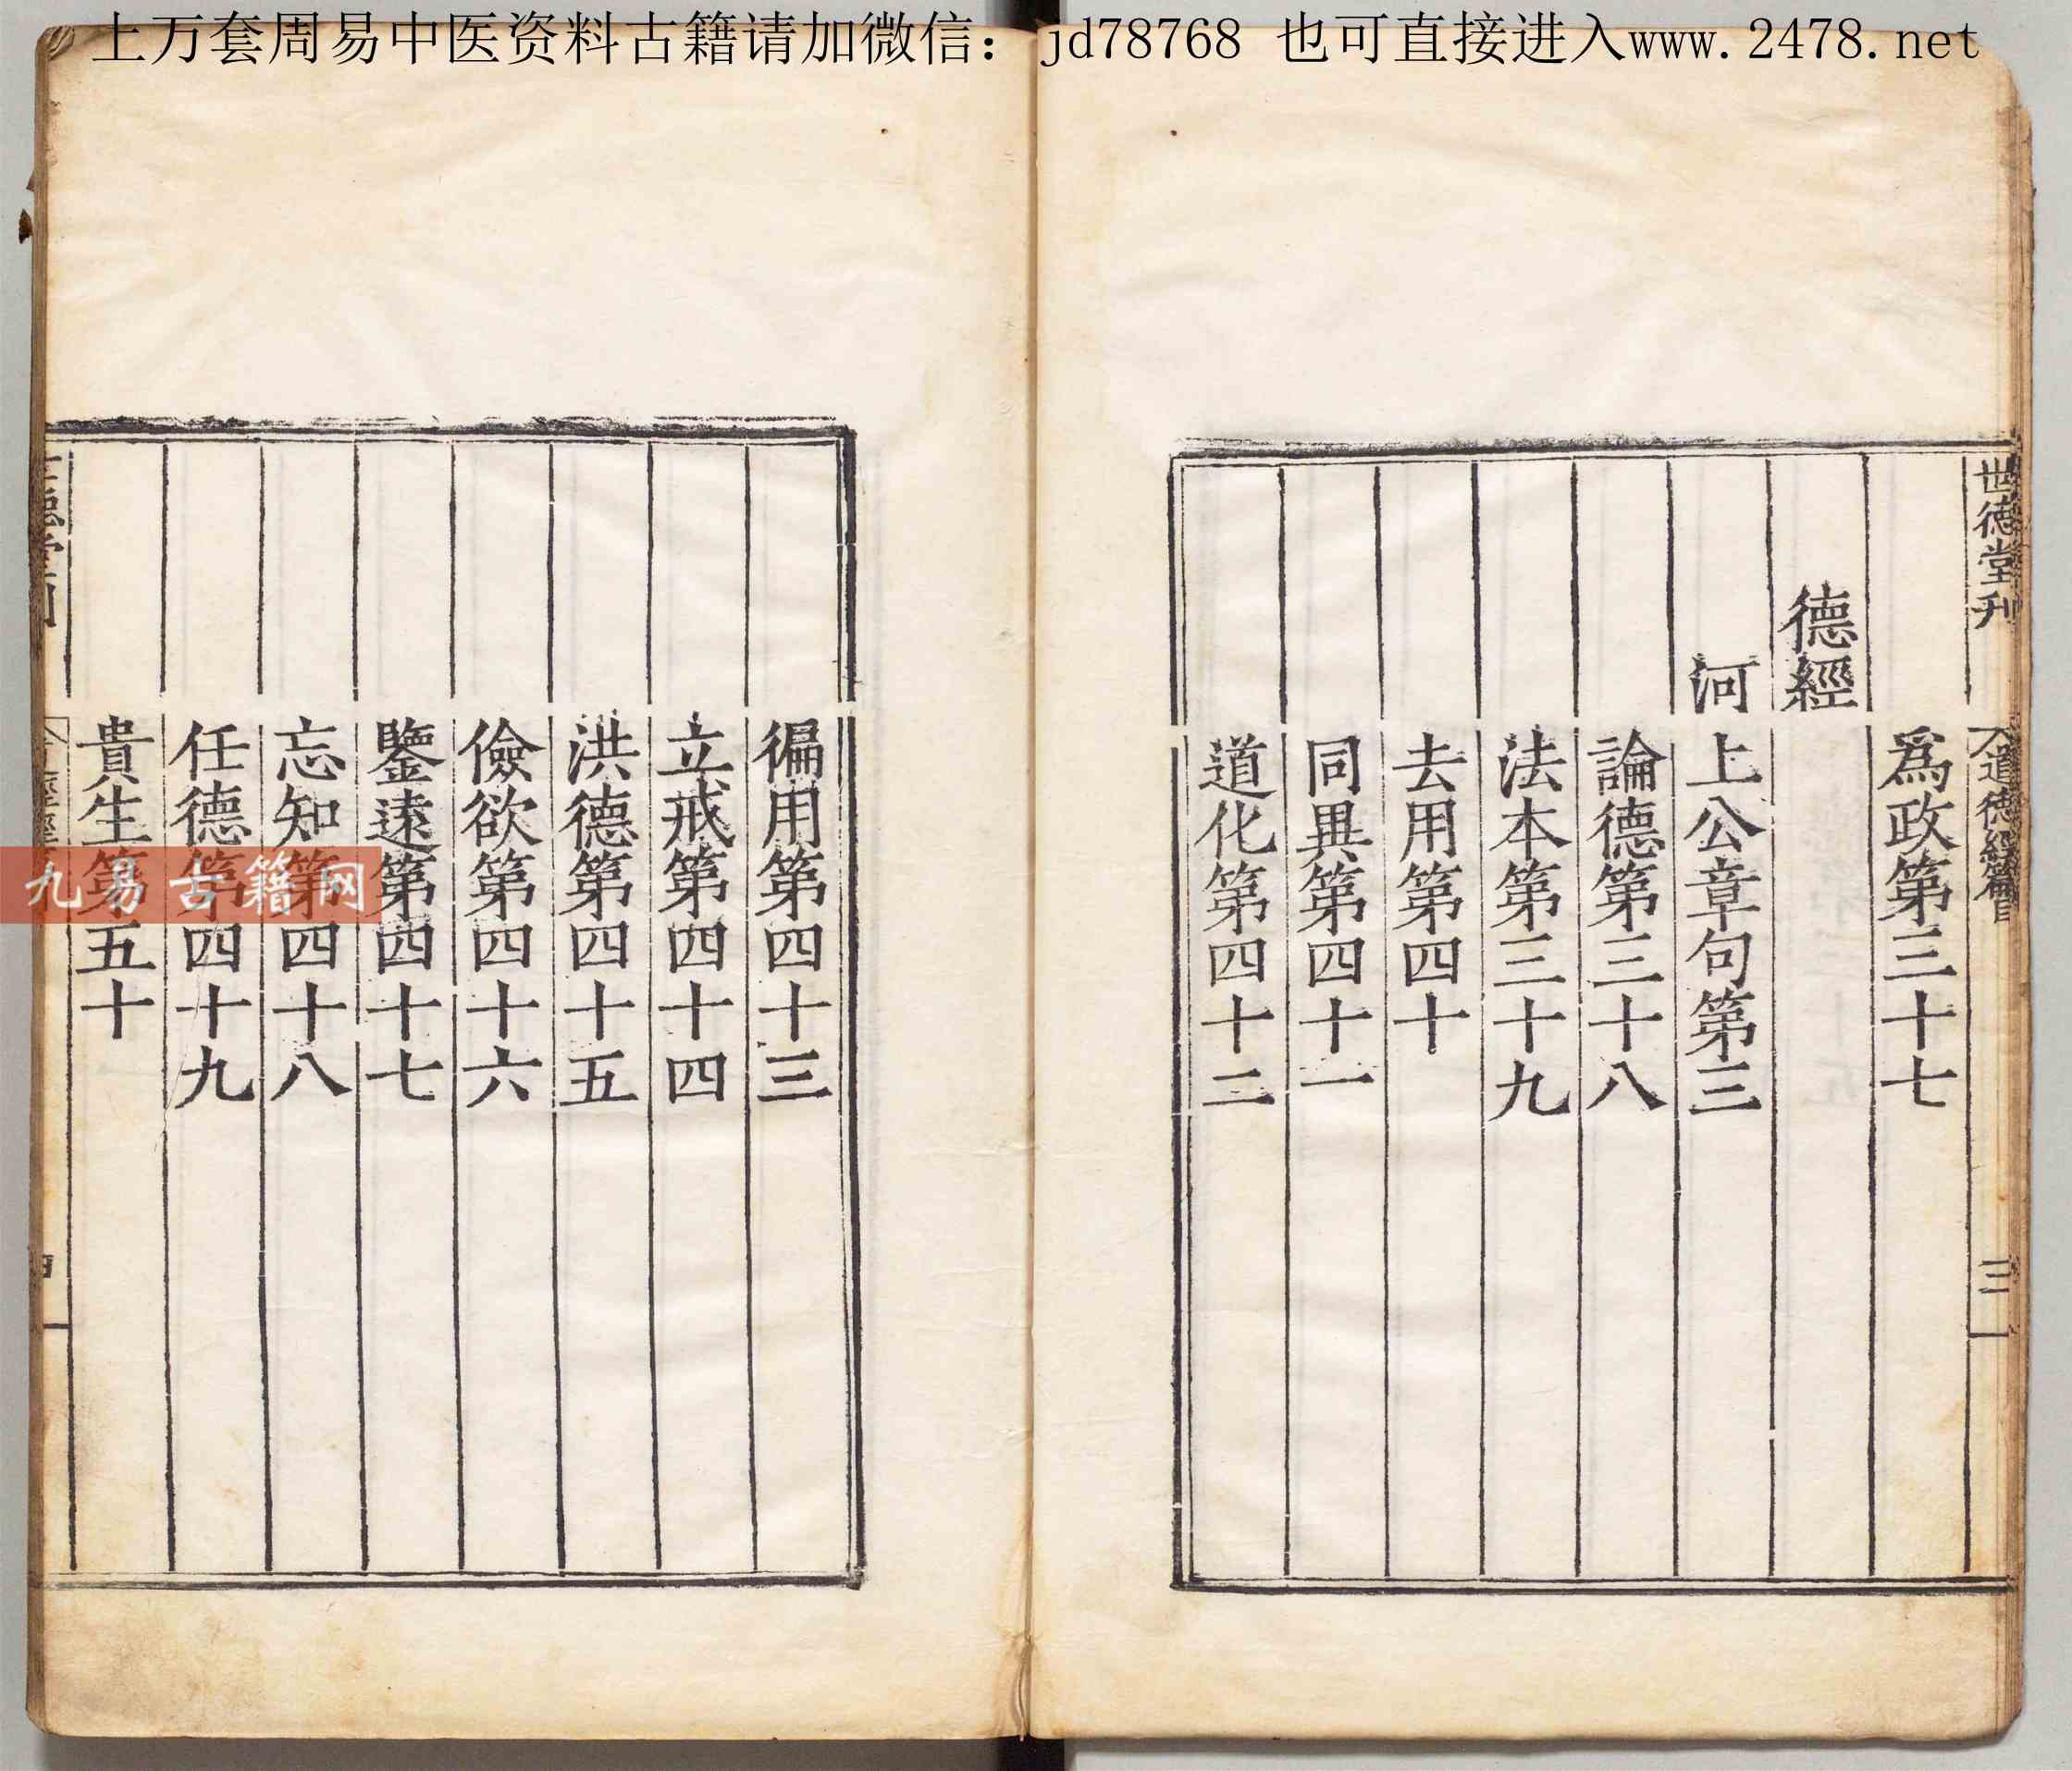 上万套周易中医资料古籍请加微信：jd78768 也可直接进入www.2478.net
世德堂刊
道德經篇目
三
爲政第三十七
德經
河上公章句第三
論德第三十八
法本第三十九
去用第四十
同異第四十一
道化第四十二
徧用第四十三
立戒第四十四
洪德第四十五
儉欲第四十六
鑒遠第四十七
忘知第四十八
任德第四十九
貴生第五十
九易古籍网